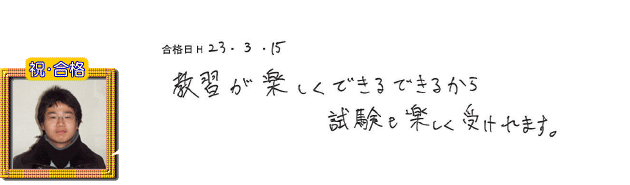 合格日 H 23・3・15
祝・合格
教習が楽しくできるできるから
試験も楽しく受けれます。